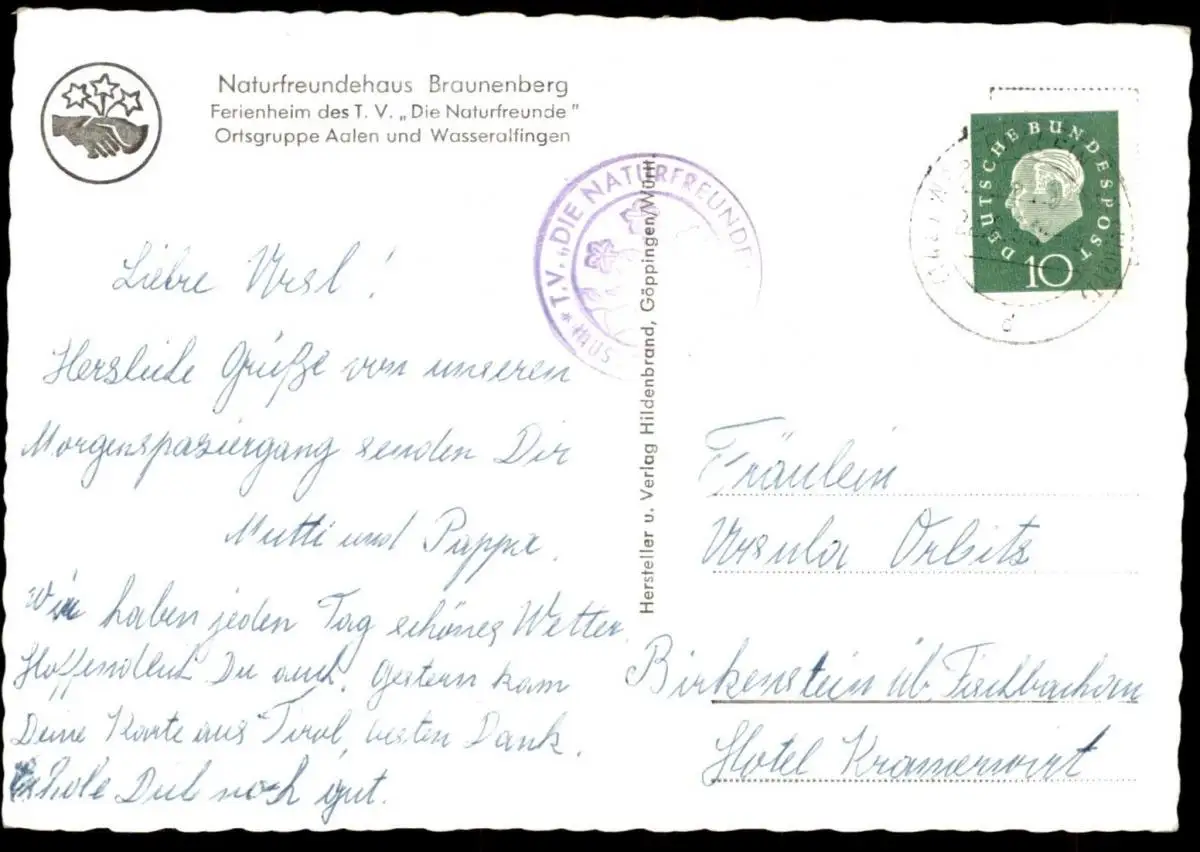 Naturfreundehaus Braunenberg
Ferienheim des T. V. „Die Naturfreunde"
Ortsgruppe Aalen und Wasseralfingen
DEUTSCHE BUNDESPOST
10
d
* T.V. „DIE NATURFREUNDE
Hersteller u. Verlag Hildenbrand, Göppingen/Württ.
Liebe Ursl!
Herzliche Grüße von unseren
Morgenspaziergang senden Dir
Mutti und Pappa.
Wir haben jeden Tag schönes Wetter.
Hoffendlich Du auch. Gestern kam
Deine Karte aus Tirol, besten Dank.
Erhole Dich noch gut.
Fräulein
Ursula Orbits
Birkenstein üb. Fischbachau
Hotel Kramerwirt